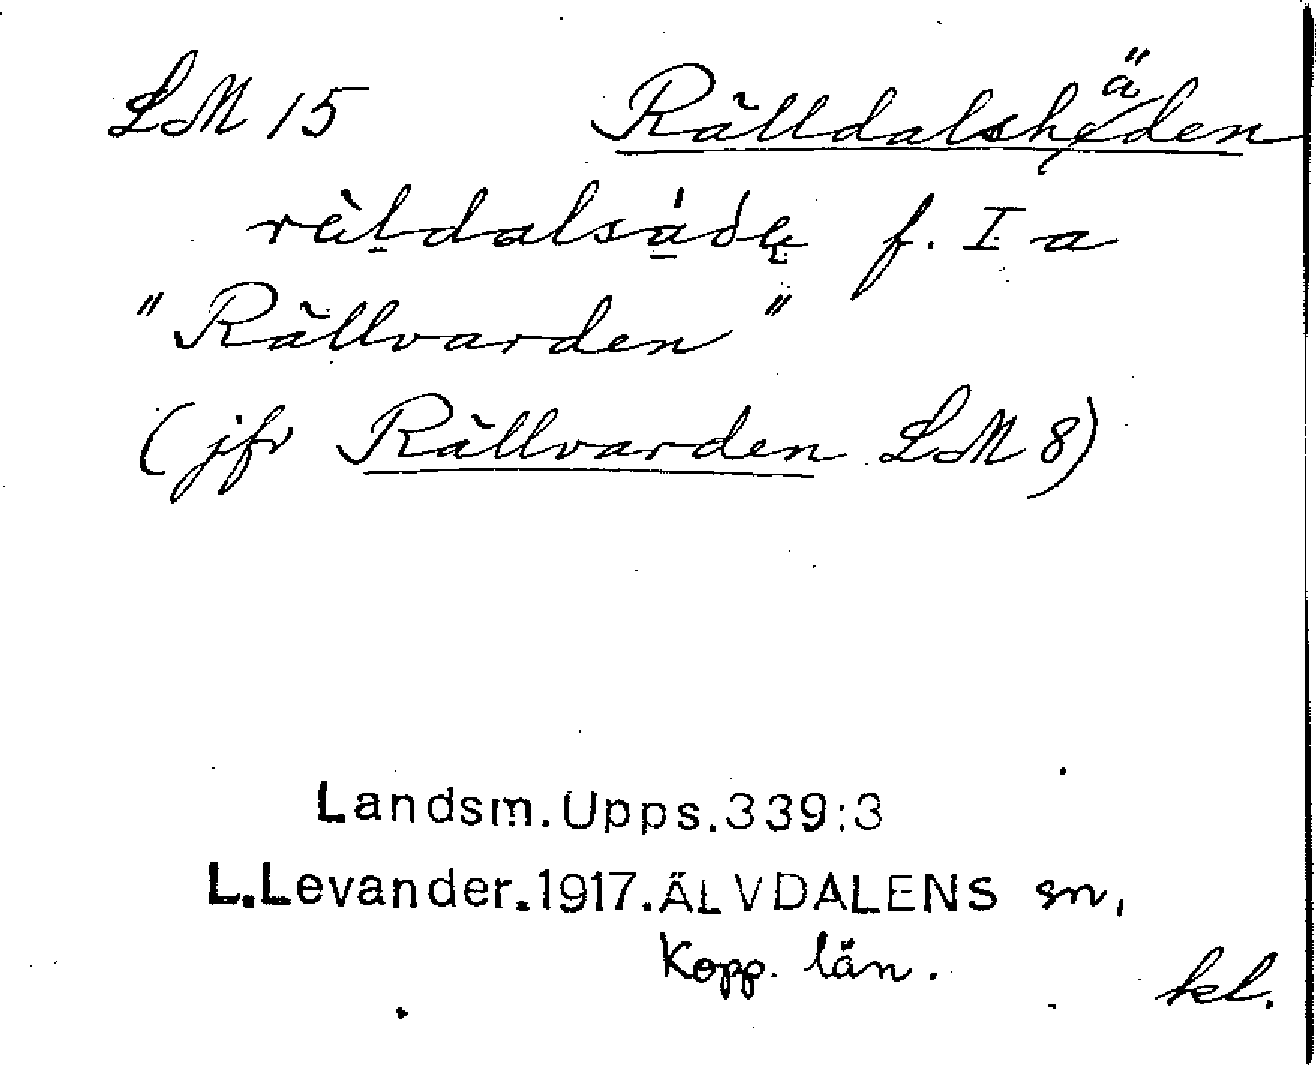 LM 15 Rälldalsheden
ä
f. I a
"Rällvarden"
(jfr Rällvarden LM 8)
Landsm.Upps.339:3
L.Levander.1917.ÄLVDALENS sn,
Kopp. län.
kl.